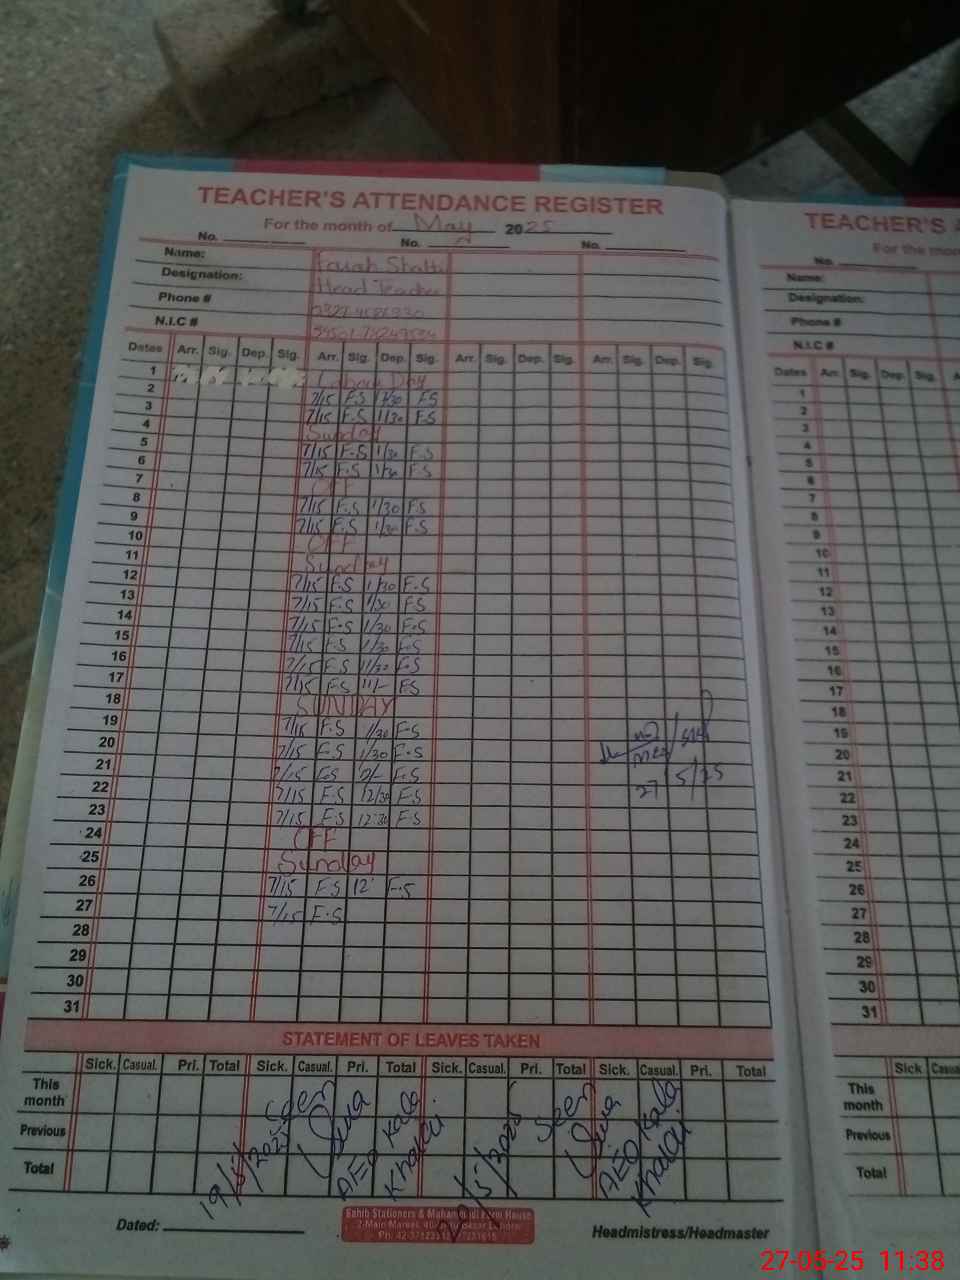 TEACHER'S ATTENDANCE REGISTER
For the month of May 2025
No. No. No.
Name: Farah Shatti
Designation: Head Teacher
Phone #
N.I.C #
Dates Arr. Sig. Dep. Sig. Arr. Sig. Dep. Sig. Arr. Sig. Dep. Sig. Arr. Sig. Dep. Sig.
1 Labour Day
2 7/15 F.S 1/30 F.S
3 7/15 F.S 11/30 F.S
4 Sunday
5 7/15 F.S 1/30 F.S
6 7/15 F.S 1/30 F.S
7 OFF
8 7/15 F.S 1/30 F.S
9 7/15 F.S 1/30 F.S
10 OFF
11 Sunday
12 7/15 F.S 1/30 F.S
13 7/15 F.S 1/30 F.S
14 7/15 F.S 1/30 F.S
15 7/15 F.S 1/30 F.S
16 7/15 F.S 11/30 F.S
17 7/15 F.S 11/- F.S
18 SUNDAY
19 7/15 F.S 1/30 F.S
20 7/15 F.S 1/30 F.S
21 7/15 F.S 2/- F.S
22 7/15 F.S 12/30 F.S
23 7/15 F.S 12:30 F.S
24 OFF
25 Sunday
26 7/15 F.S 12: F.S
27 7/15 F.S
28
29
30
31
27 5/25
STATEMENT OF LEAVES TAKEN
Sick. Casual. Pri. Total Sick. Casual. Pri. Total Sick. Casual. Pri. Total Sick. Casual. Pri. Total
This month
Previous
Total
19/5/2025 Seen
AEO Kala Khatai
20/5/2025 Seen
AEO Kala Khatai
Sahib Stationers &
Dated:
Headmistress/Headmaster
TEACHER'S A
For the mo
No.
Name:
Designation:
Phone #
N.I.C #
Dates Arr. Sig. Dep. Sig. A
1
2
3
4
5
6
7
8
9
10
11
12
13
14
15
16
17
18
19
20
21
22
23
24
25
26
27
28
29
30
31
Sick Casu
This month
Previous
Total
27-05-25 11:38